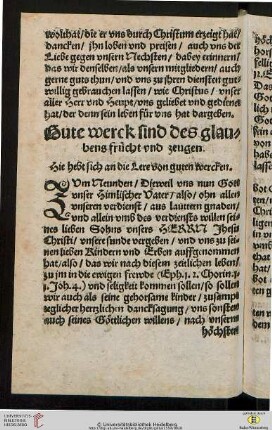 wolthat/die er vns durch Christum erzeigt hat/
dancken/ jhn loben vnd preisen/ auch vns der
Liebe gegen vnsern Nechsten/ dabey erinnern/
Das wir denselben/als vnsern mitgliedern/auch
gerne guts thun/ vnd vns zu jhren diensten gut
willig gebrauchen lassen/ wie Christus/ vnser
aller Herr vnd Heupt/vns geliebt vnd gedienet
hat/der denn sein leben für vns hat dargeben.
Gute werck sind des glau-
bens frücht vnd zeugen.
Hie hebt sich an die Lere von guten wercken.
ZVm Neunden/ Dieweil vns nun Gott
vnser Himlischer Vater/also/ohn allen
vnseren verdienst/ aus lautern gnaden/
vnd allein vmb des verdiensts willen sei-
nes lieben Sohns vnsers HERRN Jhesu
Christi/ vnsere sunde vergeben/ vnd vns zu sei-
nen lieben Kindern vnd Erben auffgenommen
hat/also/ das wir nach diesem zeitlichen leben/
zu jm in die ewigen frewde (Eph.1. 2. Chorin.5.
1. Joh.4.) vnd seligkeit kommen sollen/so sollen
wir auch als seine gehorsame kinder/ zusampt
teglicher hertzlichen dancksagung/ vns sonsten
auch seines Göttlichen willens/ nach vnserm
höchsten
UNIVERSITÄTS-
BIBLIOTHEK
HEIDELBERG
© Universitätsbibliothek Heidelberg